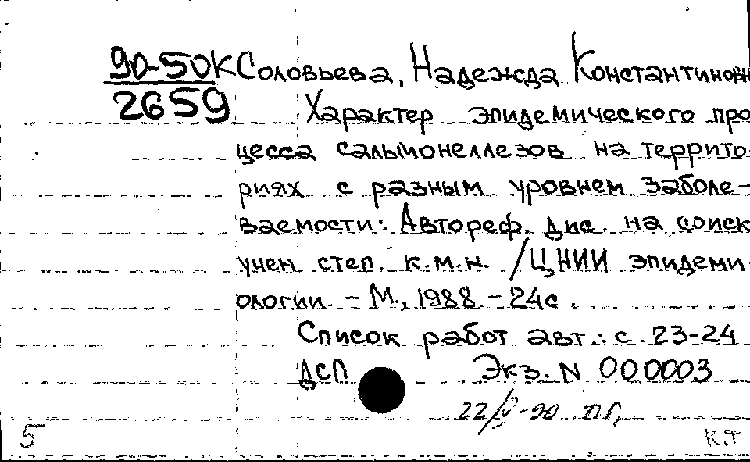 90-50К Соловьева, Надежда Константиновн
2659 Характер эпидемического про
цесса сальмонеллезов на террито
риях с разным уровнем заболе-
ваемости: Автореф. дис. на соиск
учен. степ. к.м.н. / ЦНИИ эпидеми
ологии – М., 1988 – 24с.
Список работ авт.: с. 23-24
ДСП Экз. N 000003
22/IV-90 ПГ,
5 К.Т